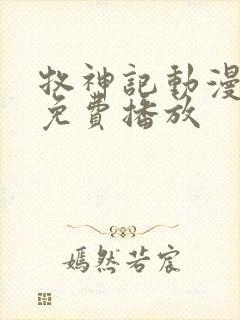 牧神記動漫
免費播放
嫣然若宸